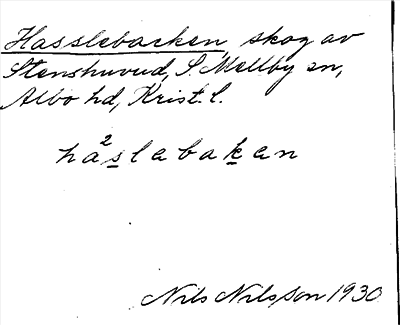 Hasslebacken, skog av
Stenshuvud, S. Mellby sn,
Albo hd, Krist. l.
ha²slebakan
Nils Nilsson 1930